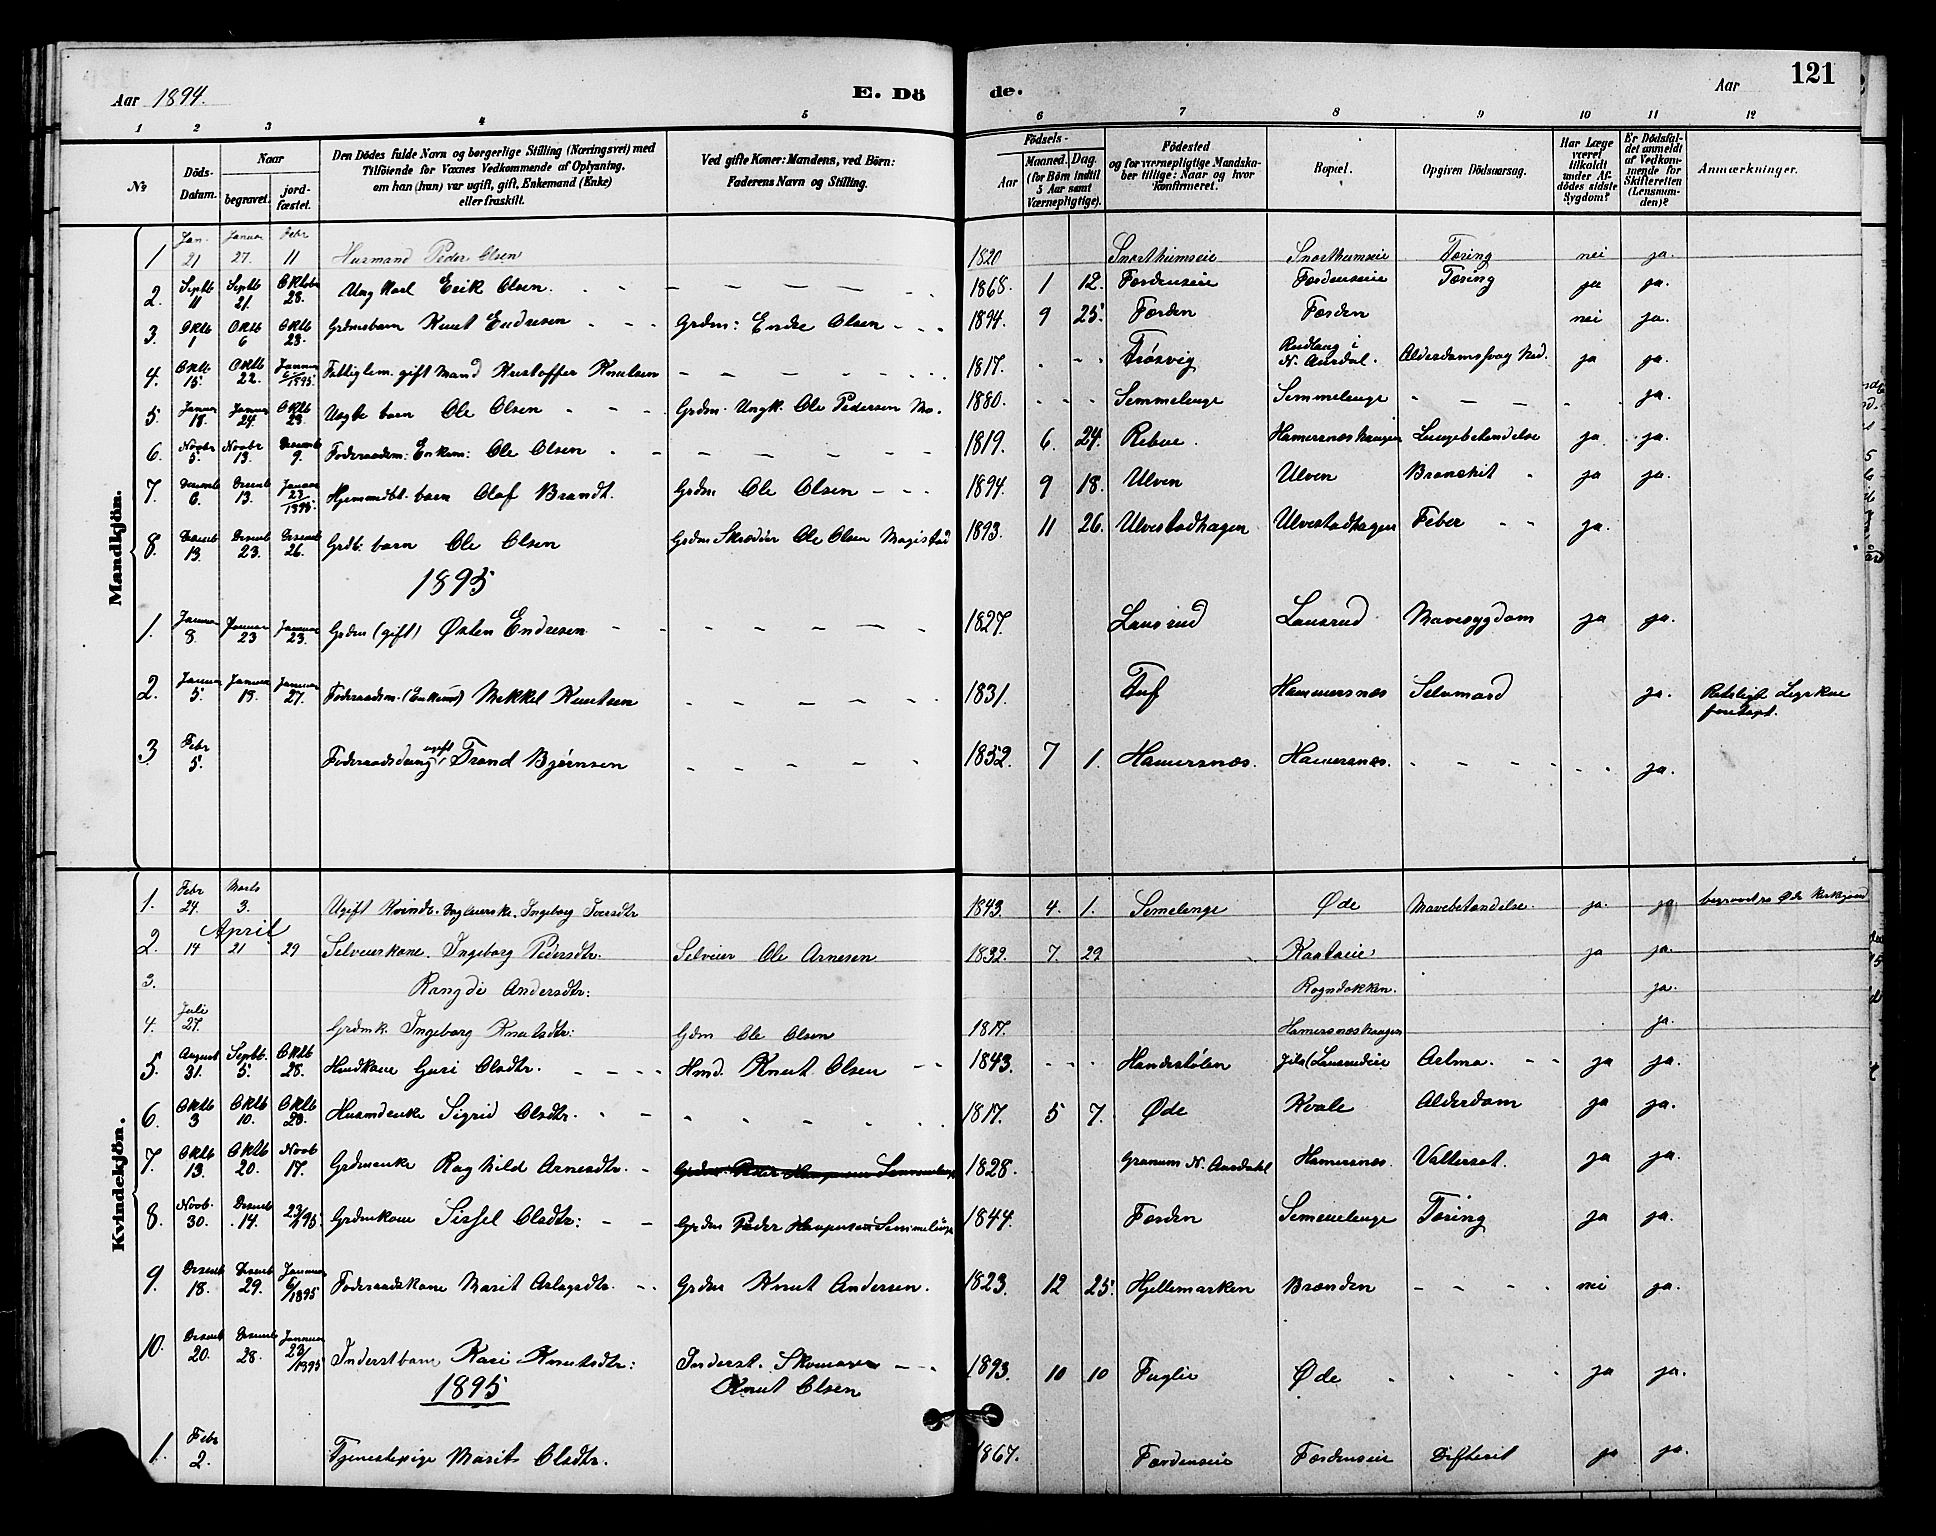 Aar 1894.
E. Dö
de.
Aar
121
1 2 3 4 5 6 7 8 9 10 11 12
No
Döds-Datum.
Naar
begravet.
jordfæstet.
Den Dödes fulde Navn og borgerlige Stilling (Næringsvei) med
Tilföiende for Voxnes Vedkommende af Oplysning,
om han (hun) var ugift, gift, Enkemand (Enke)
eller fraskilt.
Ved gifte Koner: Mandens, ved Börn:
Faderens Navn og Stilling.
Födsels-
Aar
Maaned. Dag.
(for Börn indtil
5 Aar samt
Værnepligtige).
Födested
og for værnepligtige Mandska-
ber tillige: Naar og hvor
konfirmeret.
Bopæl.
Opgiven Dödsaarsag.
Har Læge
været
tilkaldt
under Af-
dödes sidste
Sygdom?
Er Dödsfal-
det anmeldt
af Vedkom-
mende for
Skifteretten
(Lensman-
den)?
Anmærkninger.
Mandkjön.
1 Jan. 21 Januar 27. Febr 11 Husmand Peder Olsen 1820 Snortheimseie Snortheimseie Tæring nei ja.
2. Septb 11 Septb 21. Oktobr 28. Ungkarl Erik Olsen. 1868. 1 12. Fordenseie Fordenseie Tæring ja ja.
3. Oktb 1 Oktb 6 Oktb 28. Grdmsbarn Knut Endresen Grdm: Endre Olsen 1894. 9 25. Førden Førden nei ja.
4. Oktb 15. Oktb 22. Januar 6/1895. Fattiglem. gift Mand Kristoffer Knutsen 1817. Trøsvig N. Aurdal. ja ja.
5 Januar 18. Januar 24. Oktb 28. Uegte barn Ole Olsen Grdm. Ungk. Ole Pedersen Mo. 1880. Semmelenge Semmelenge ja.
6. Novbr 5. Novbr 13. Desemb 9. Føderaadsm: Enkem: Ole Olsen 1819. 6 24. Rebue. Hamersnæshaugen Lungebetendelse ja ja.
7. Desemb 6. Desemb 13. Januar 23/1895. barn Olaf Brandt. Grdm Ole Olsen 1894. 9 18. Ulven Ulven Bronchit ja ja.
8. Desemb 13. Desemb 23. Desemb 26. Grdb. barn Ole Olsen Grdm Skrædder Ole Olsen Magistad 1893. 11 26. Ulvestadhagen Ulvestadhagen Feber ja.
1895
1. Januar 8 Januar 23 Januar 23. Grdm (gift) Østen Endresen 1827. Lausrud Lausrud Mavesygdom ja ja.
2. Januar 5. Januar 19. Januar 27. Føderaadsm. (Enkem) Mekkel Knutsen 1831. Tuf Hammersnæs Selvmord ja. Retsligt
foretagt.
3 Febr 5. Føderaadsdreng ugift Trond Bjørnsen 1852. 7 1. Hamersnæs. Hamersnæs. ja.
Kvindekjön.
1. Febr 24. Marts 3. Ugift Kvinde. Ingeborg Iversdtr 1843. 4. 1. Semelenge Øde Mavebetendelse. ja. ja
2 April 14 21 29 Selveierkone. Ingeborg Pedersdtr. Selveier Ole Arnesen 1832. 7. 29 ja ja.
3. Rangdi Andersdtr: Rogndokken. ja.
4. Juli 27. Grdmk. Ingeborg Knutsdtr: Gdm Ole Olsen 1817. Hamersnæshaugen ja.
5. August 31. Septb. 5. Oktb 28. Hmdkone Guri Olsdtr. Hmd. Knut Olsen 1843. Handestølen (Lausrudeie Astma. ja ja.
6. Oktb 3 Oktb 10. Oktb 28. Husmdenke Sigrid Olsdtr. 1817. 5 7. Øde Kvale Alderdom ja ja.
7. Oktb 13. Oktb 20. Novb 17. Grdmenke Raghild Arnesdtr. 1828. Granum N. Aurdahl Hamersnæs. Vattersot. ja ja.
8. Novb. 30. Desemb 14. 23/1 95. Grdmkone Sissel Olsdtr: Grdm Peder Semmelenge 1844. Forden Semmelenge Tæring ja ja.
9. Desemb 18. Desemb 29. Januar 6/1895 Føderaadskone Marit Aslagsdtr. Grdm Knut Andersen. 1823. 12 25. Hjellemarken Brænden nei ja.
10. Desemb 20. Desemb 28. Januar 23/1895 Inderstbarn Kari Knutsdtr: Inderst. Skomager
Knut Olsen 1893. 10 10 Fuglie Øde ja ja.
1895
1. Febr 2. Tjenestepige Marit Olsdtr. 1867. Fordenseie Fordenseie Difterit ja ja.